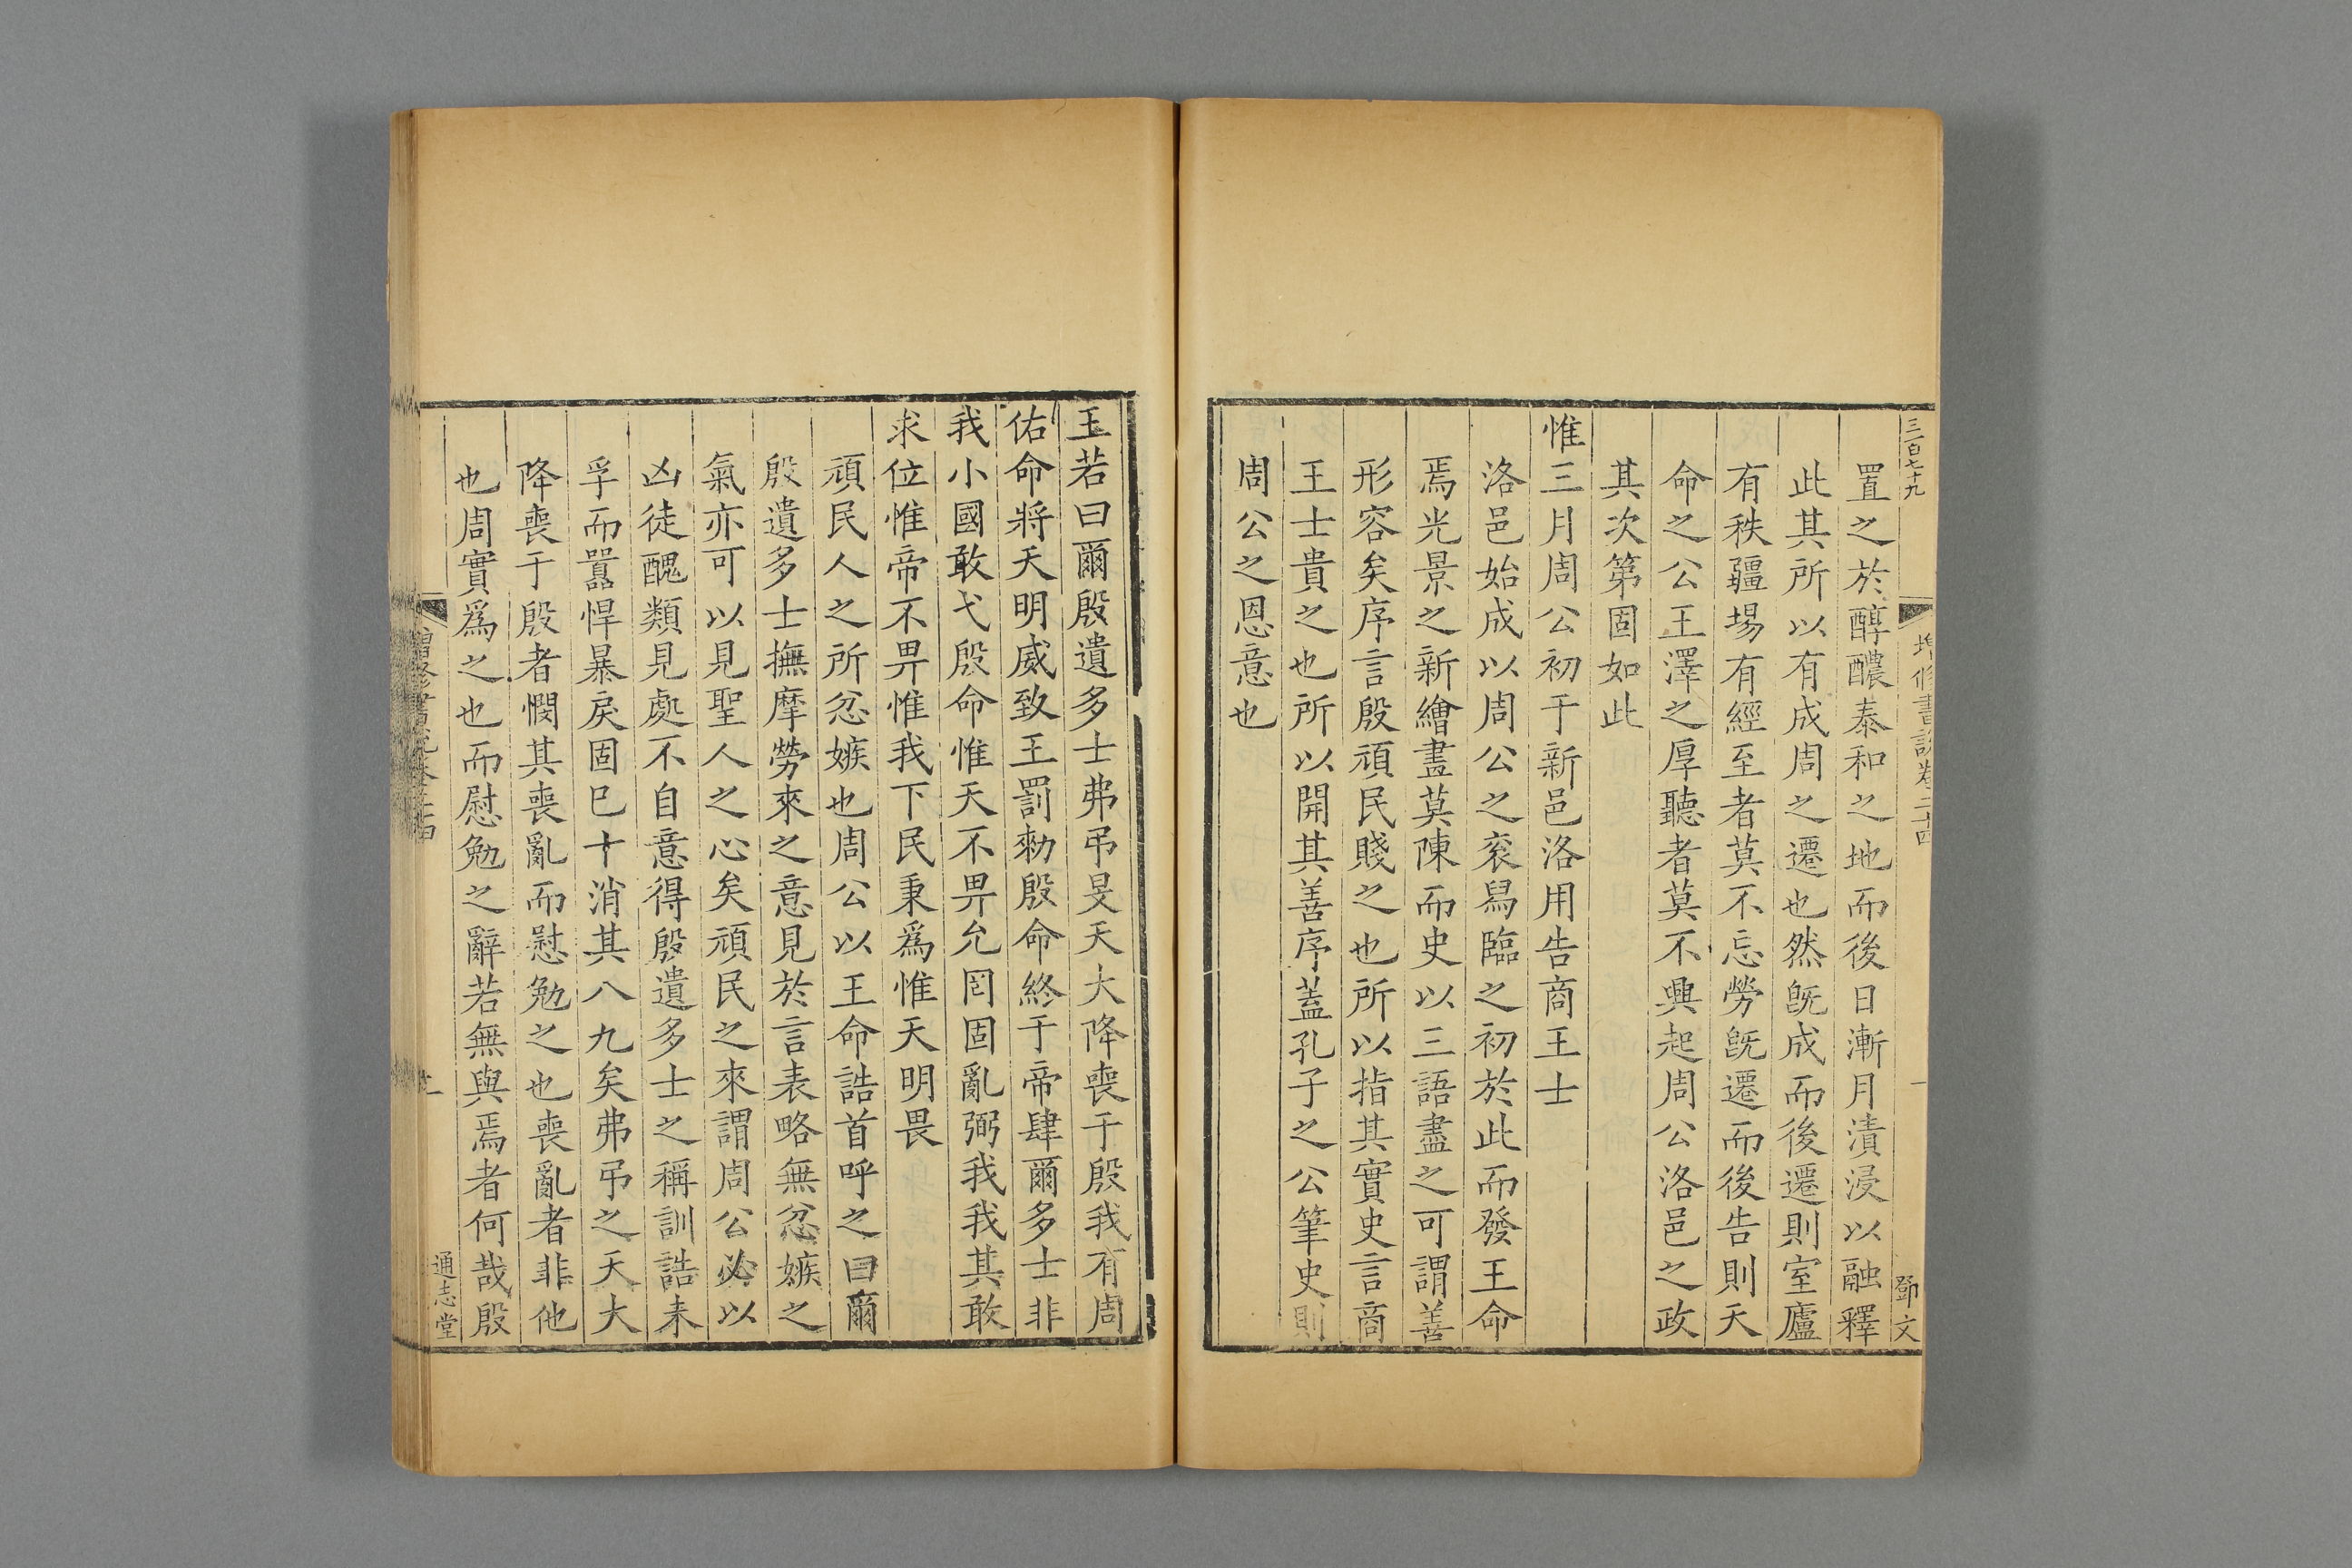 三百七十九
增修書說卷二十四
一
鄧文
置之於醇醲泰和之地而後日漸月漬浸以融釋
此其所以有成周之遷也然旣成而後遷則室廬
有秩疆場有經至者莫不忘勞旣遷而後告則天
命之公王澤之厚聽者莫不興起周公洛邑之政
其次第固如此
惟三月周公初于新邑洛用告商王士
洛邑始成以周公之衮舄臨之初於此而發王命
焉光景之新繪畫莫陳而史以三語盡之可謂善
形容矣序言殷頑民賤之也所以指其實史言商
王士貴之也所以開其善序蓋孔子之公筆史則
周公之恩意也
王若曰爾殷遺多士弗弔旻天大降喪于殷我有周
佑命將天明威致王罰勑殷命終于帝肆爾多士非
我小國敢弋殷命惟天不畀允罔固亂弼我我其敢
求位惟帝不畀惟我下民秉爲惟天明畏
頑民人之所忿嫉也周公以王命誥首呼之曰爾
殷遺多士撫摩勞來之意見於言表略無忿嫉之
氣亦可以見聖人之心矣頑民之來謂周公必以
凶徒醜類見處不自意得殷遺多士之稱訓誥未
孚而囂悍暴戾固已十消其八九矣弗弔之天大
降喪于殷者憫其喪亂而慰勉之也喪亂者非他
也周實爲之也而慰勉之辭若無與焉者何哉殷
通志堂